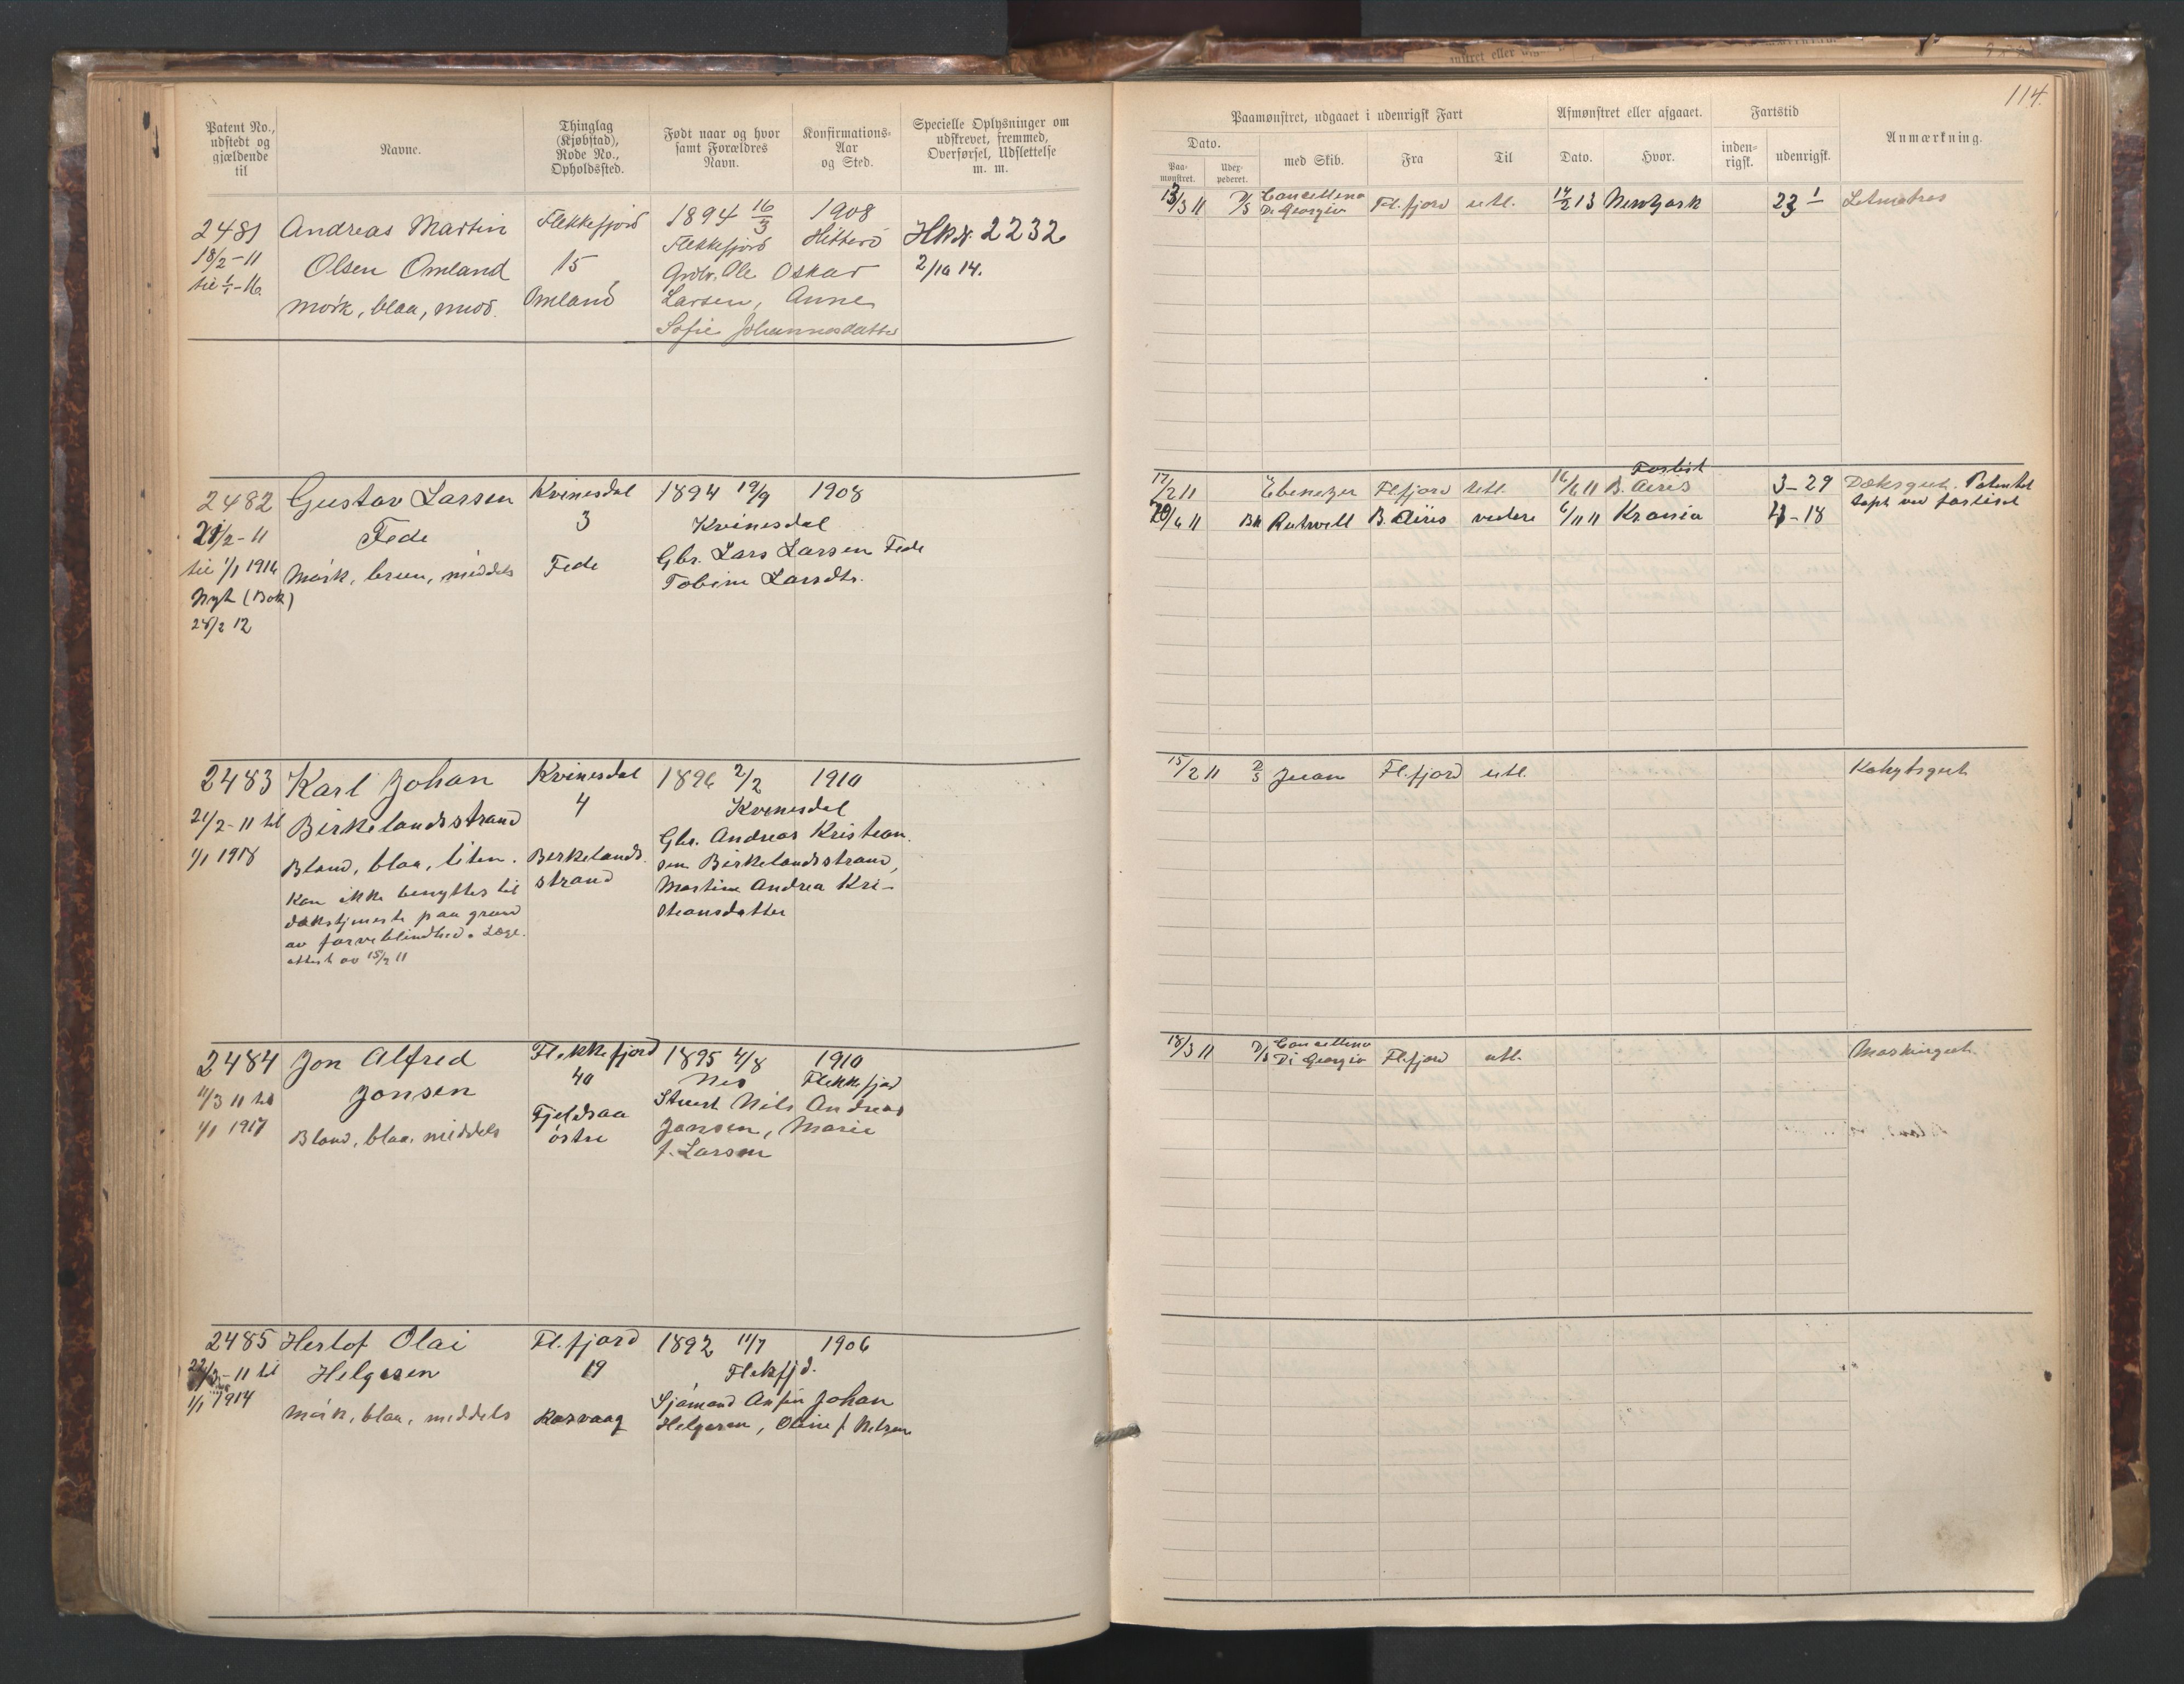 114.
Patent No., udstedt og gjældende til
Navne.
Thinglag (Kjøbstad), Rode No., Opholdssted.
Født naar og hvor samt Forældres Navn.
Konfirmations-Aar og Sted.
Specielle Oplysninger om udskrevet, fremmed, Overførsel, Udslettelse m. m.
Paamønstret, udgaaet i udenrigsk Fart
Afmønstret eller afgaaet.
Fartstid
Anmærkning.
Dato.
Paa-mønstret.
med Skib.
Fra
Til
Dato.
Hvor.
inden-rigsk.
udenrigsk.
2481 Andreas Martin Flekkefjord 1894 16/3 1908
18/2-11 Olsen Omland 15 Flekkefjord Hitterø Hk№ 2232
til 1/1-16 Omland Ole Oskar 2/10 14.
mørk, blaa, mid. Larsen, Anne
Sofie Johannesdatter
13/3 11 Di Georgio Fl.fjord utl. 14/2 13 Newyork 23 1 Letmatros
2482 Gustav Larsen Kvinesdal 1894 19/9 1908
21/2-11 Fede 3 Kvinesdal
til 1/1 1916 Mørk, brun, middels Fede Gbr. Lars Larsen Fede
Nyt (Bok) Tobine Larsdtr.
28/2 12
17/2 11 Ebenezer Fl.fjord utl. 16/6 11 Forlist B. Aires 3-29 Dæksgut. Patentet
tapt ved forliset
20/6 11 Bk Ruthwell B. Aires videre 6/11 11 Krania 4-18
2483 Karl Johan Kvinesdal 1896 2/2 1910
21/2-11 til Birkelandsstrand 4 Kvinesdal
1/1 1918 Blond, blaa, liten. Birkelands-strand Gbr. Andreas Kristian-
sen Birkelandsstrand,
Martine Andrea Kri-
stiansdatter
Kan ikke benyttes til
dækstjeneste paa grund
av farveblindhed. Læge-
attest av 15/2 11
15/2 11 Juan Fl.fjord utl. Kahytsgut
2484 Jon Alfred Flekkefjord 1895 4/8 1910
11/3 11 til Jonsen 40 Nes Flekkefjord
1/1 1917 Blond, blaa, middels Fjeldsaa østre Stuert Nils Andreas
Jonsen, Marie
f. Larsen
18/3 11 Di Georgio Fl.fjord utl. Maskingut
2485 Herlof Olai Fl.fjord 1892 11/7 1906
22/3-11 til Helgesen 19 Flekfjd.
1/1 1914 Mørk, blaa, middels Rasvaag Sjømand Johan
Helgesen, Oline f. Nelsen